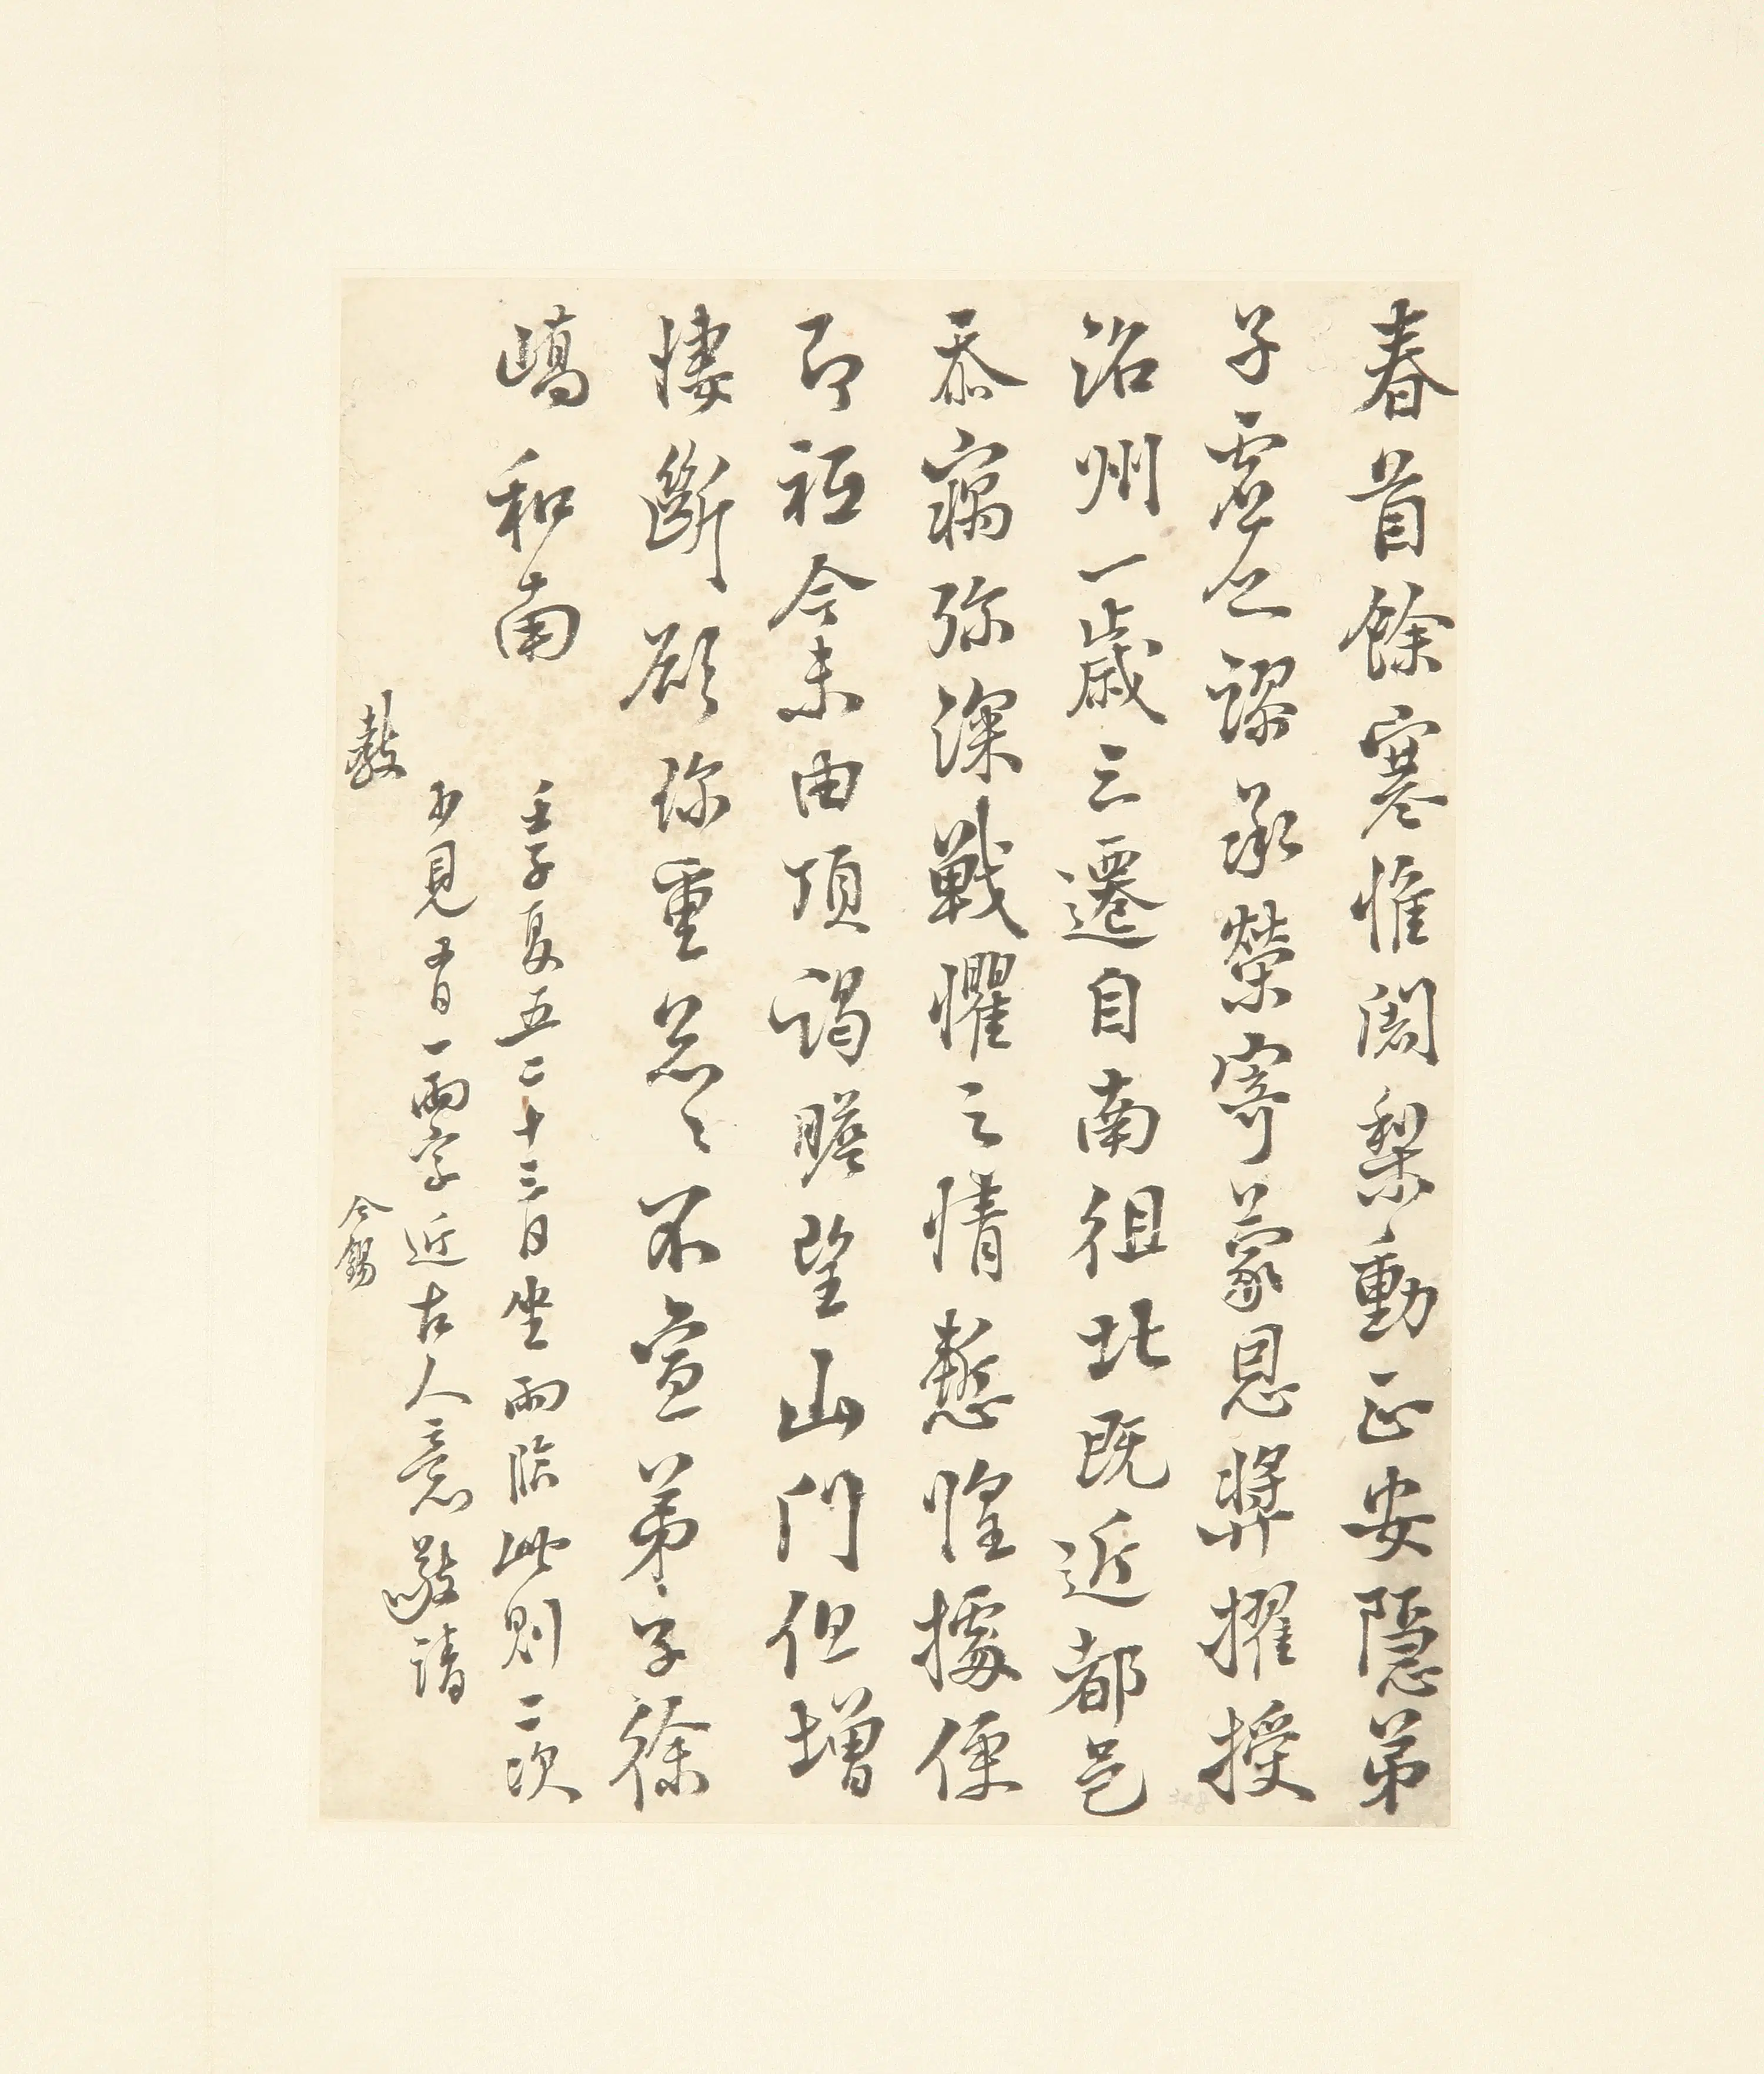 春首餘寒惟闍梨動止安隱弟
子虛乏謬承榮寄蒙恩獎擢授
洺州一歲三遷自南徂北既近都邑
忝竊弥深戰懼之情慙惶據便
即祗今未由頂謁瞻望山門但增
悽斷願珍重忩〻不宣弟子徐
嶠和南
壬子夏五二十三日坐雨臨此則二次
見百一兩字近古人意敬請
教